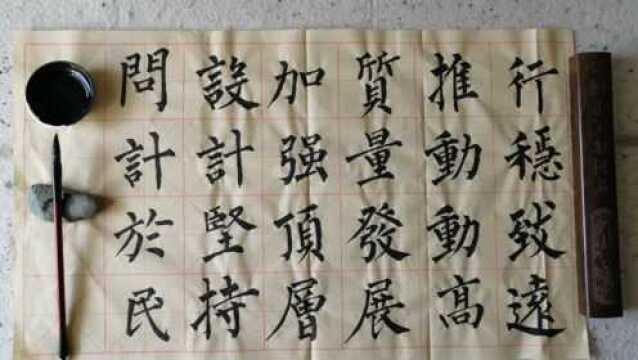 行穩致遠
推動動高
質量發展
加强頂層
設計堅持
問計於民